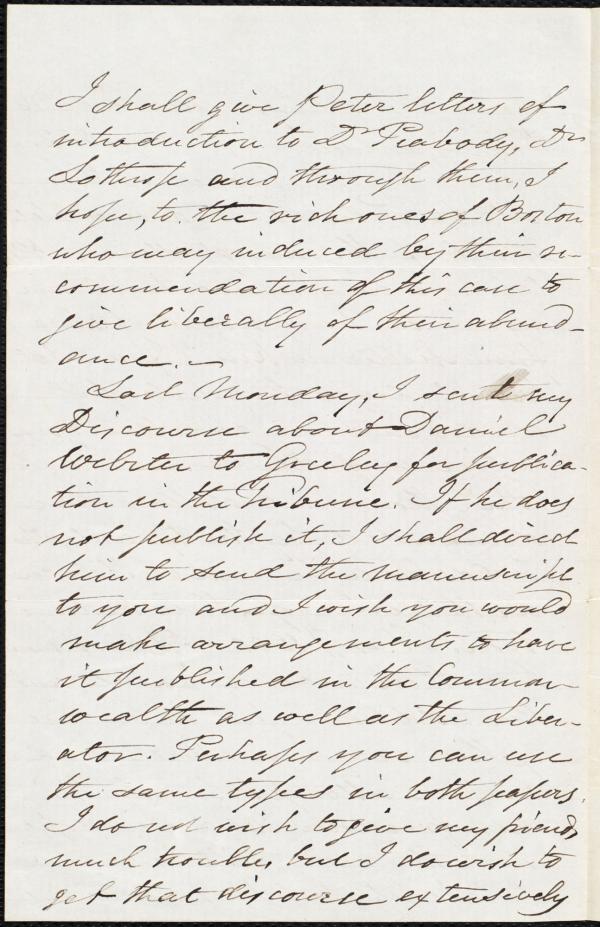 I shall give Peter letters of
introduction to Dr Peabody, Dr
Lothrop and through them, I
hope, to the rich ones of Boston
who may induced by their re-
commendation of this case to
give liberally of their abund-
ance. –
Last Monday, I sent my
Discourse about Daniel
Webster to Greeley for publica-
tion in the Tribune. If he does
not publish it, I shall direct
him to send the manuscript
to you and I wish you would
make arrangements to have
it published in the Common-
wealth as well as the Liber-
ator. Perhaps you can use
the same types in both papers.
I do not wish to give my friends
much trouble, but I do wish to
get that discourse extensively